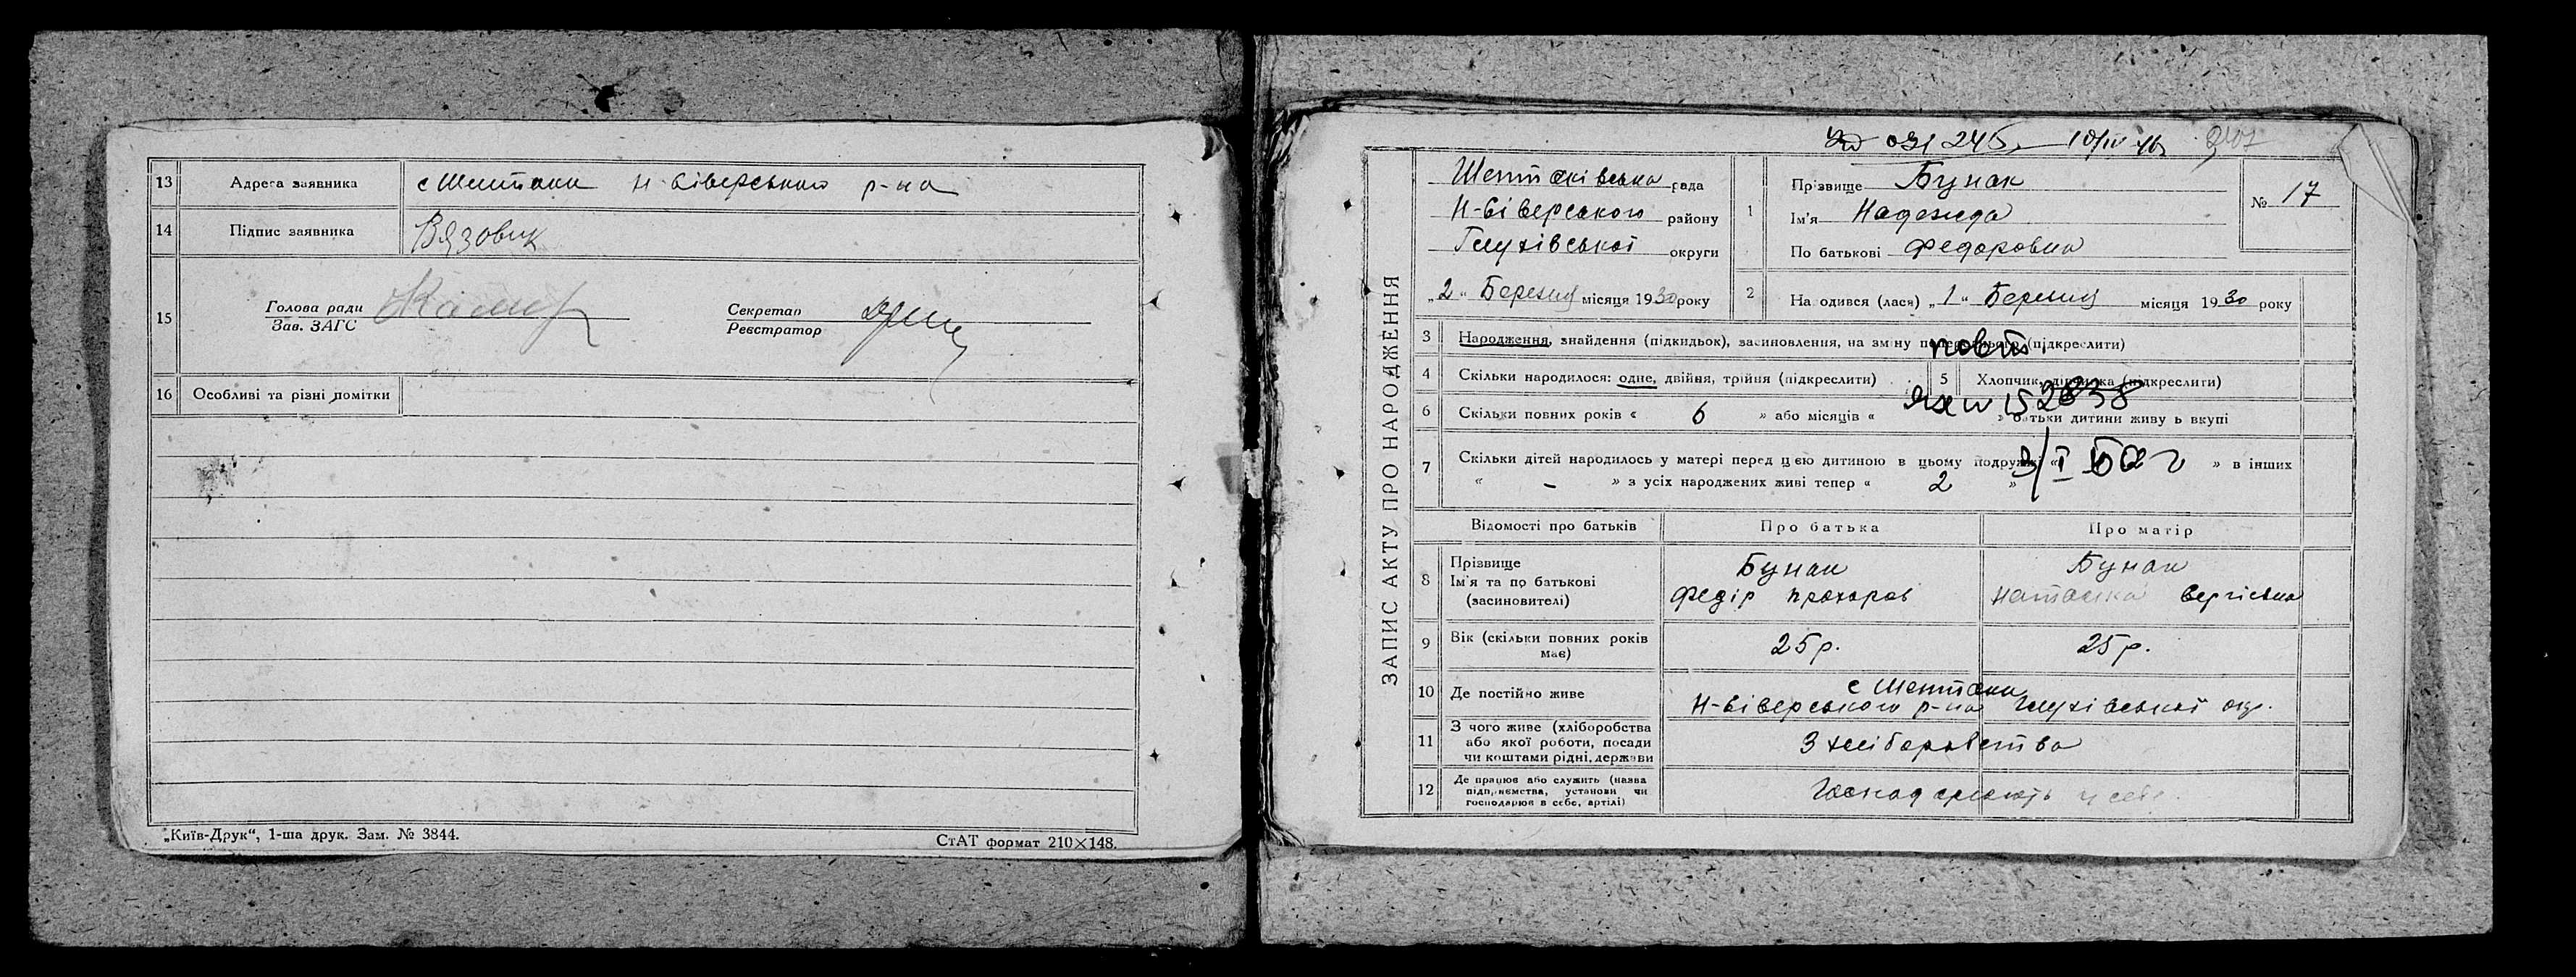 13 Адреса заявника с Шептаки Н-Сіверського р-на
14 Підпис заявника Вязовик
15 Голова ради
Зав. ЗАГС
Секретар
Реєстратор
16 Особливі та різні помітки
„Київ-Друк“, 1-ша друк. Зам. № 3844.
СтАТ формат 210×148.
031245 10/IV 46
ЗАПИС АКТУ ПРО НАРОДЖЕННЯ
Шептаківська рада
Н-Сіверського району
Глухівської округи
„2“ Березня місяця 1930 року
1 Прізвище Бунак
Ім'я Надежда
По батькові Федоровна
№ 17
2 Народився (лася) „1“ Березня місяця 1930 року
3 Народження, знайдення (підкидьок), засиновлення, на зміну попереднього (підкреслити)
повт.
4 Скільки народилося: одне, двійня, трійня (підкреслити)
5 Хлопчик, дівчинка (підкреслити)
6 Скільки повних років « 6 » або місяців « » батьки дитини живуть вкупі
7 Скільки дітей народилось у матері перед цією дитиною в цьому подружжі « » в інших
« - » з усіх народжених живі тепер « 2 »
Відомості про батьків Про батька Про матір
8 Прізвище
Ім'я та по батькові
(засиновителі)
Бунак
Федір Прохоров
Бунак
Наташка Сергієвна
9 Вік (скільки повних років
має)
25 р. 25 р.
10 Де постійно живе
с Шептаки
Н-Сіверського р-на Глухівської окр.
11 З чого живе (хліборобства
або якої роботи, посади
чи коштами рідні, держави
З хліборобства
12 Де працює або служить (назва
підприємства, установи чи
господарює в себе, артілі)
Господарюють у себе